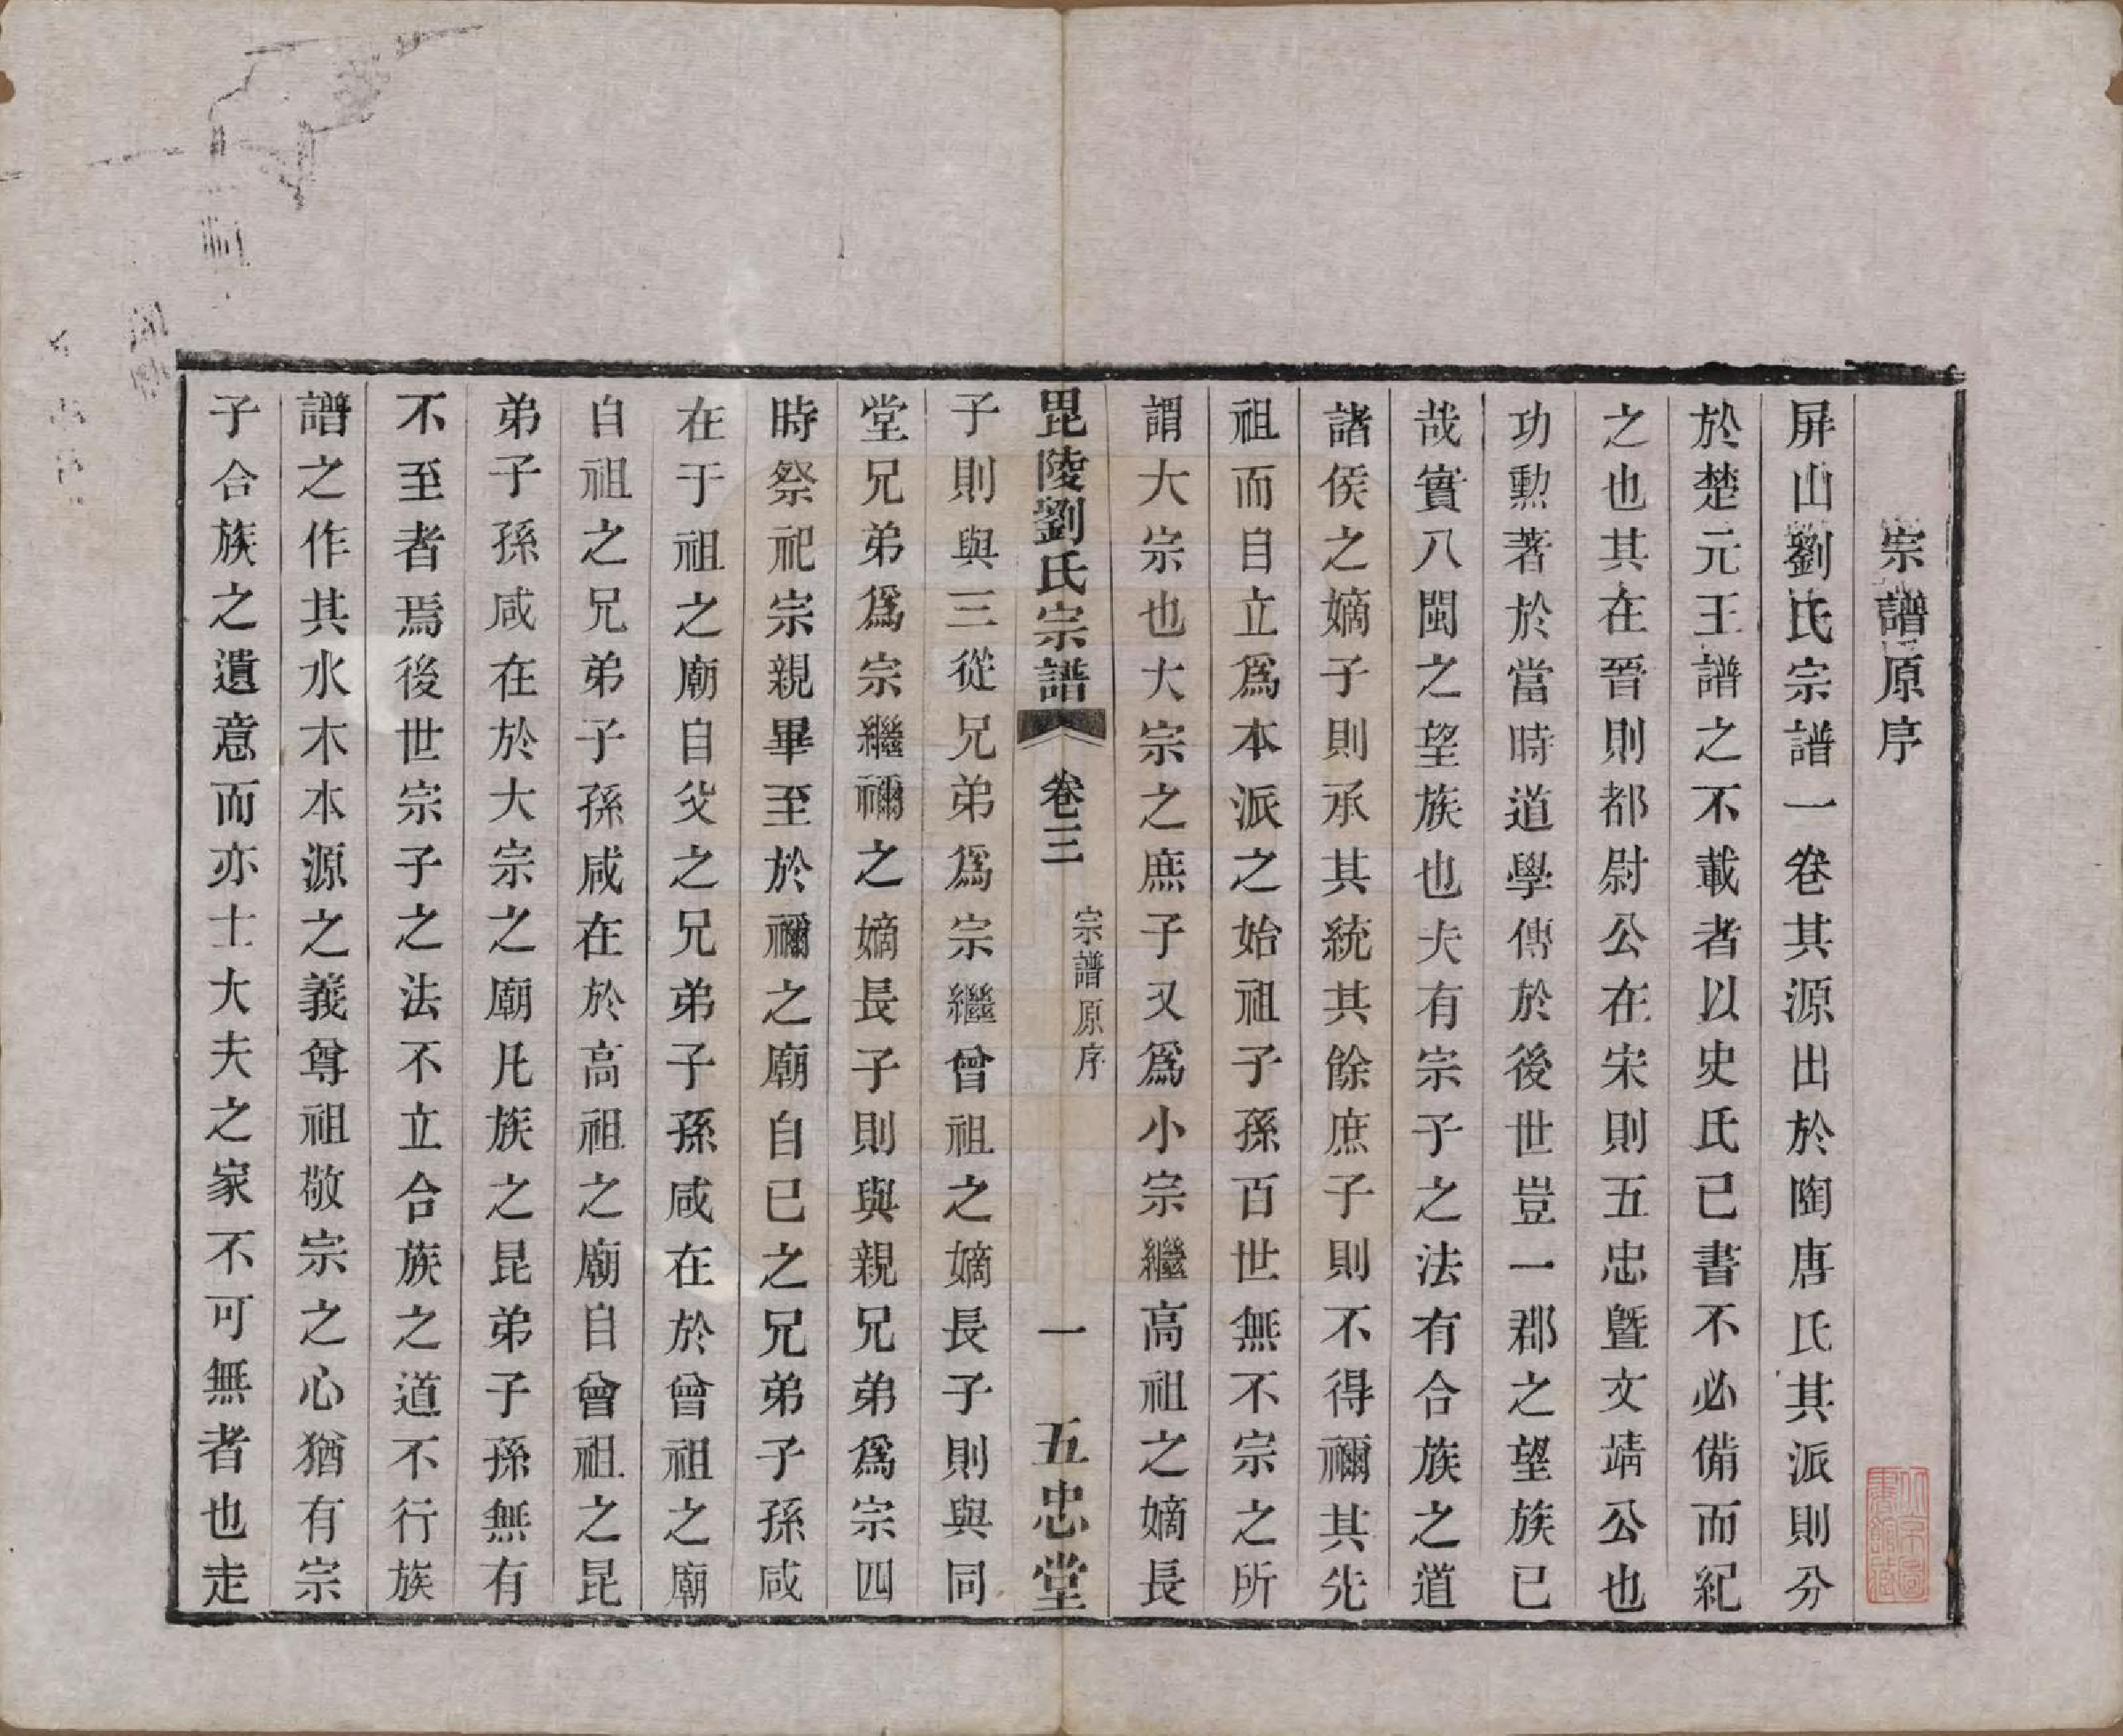 宗譜原序
屏山劉氏宗譜一卷其源出於陶唐氏其派則分
於楚元王譜之不載者以史氏已書不必備而紀
之也其在晉則都尉公在宋則五忠曁文靖公也
功勲著於當時道學傳於後世豈一郡之望族已
哉實八閩之望族也夫有宗子之法有合族之道
諸侯之嫡子則承其統其餘庶子則不得禰其先
祖而自立爲本派之始祖子孫百世無不宗之所
謂大宗也大宗之庶子又爲小宗繼高祖之嫡長
毘陵劉氏宗譜 卷三 宗譜原序 一 五忠堂
子則與三從兄弟爲宗繼曾祖之嫡長子則與同
堂兄弟爲宗繼禰之嫡長子則與親兄弟爲宗四
時祭祀宗親畢至於禰之廟自已之兄弟子孫咸
在于祖之廟自父之兄弟子孫咸在於曾祖之廟
自祖之兄弟子孫咸在於高祖之廟自曾祖之昆
弟子孫咸在於大宗之廟凡族之昆弟子孫無有
不至者焉後世宗子之法不立合族之道不行族
譜之作其水木本源之義尊祖敬宗之心猶有宗
子合族之遺意而亦士大夫之家不可無者也走